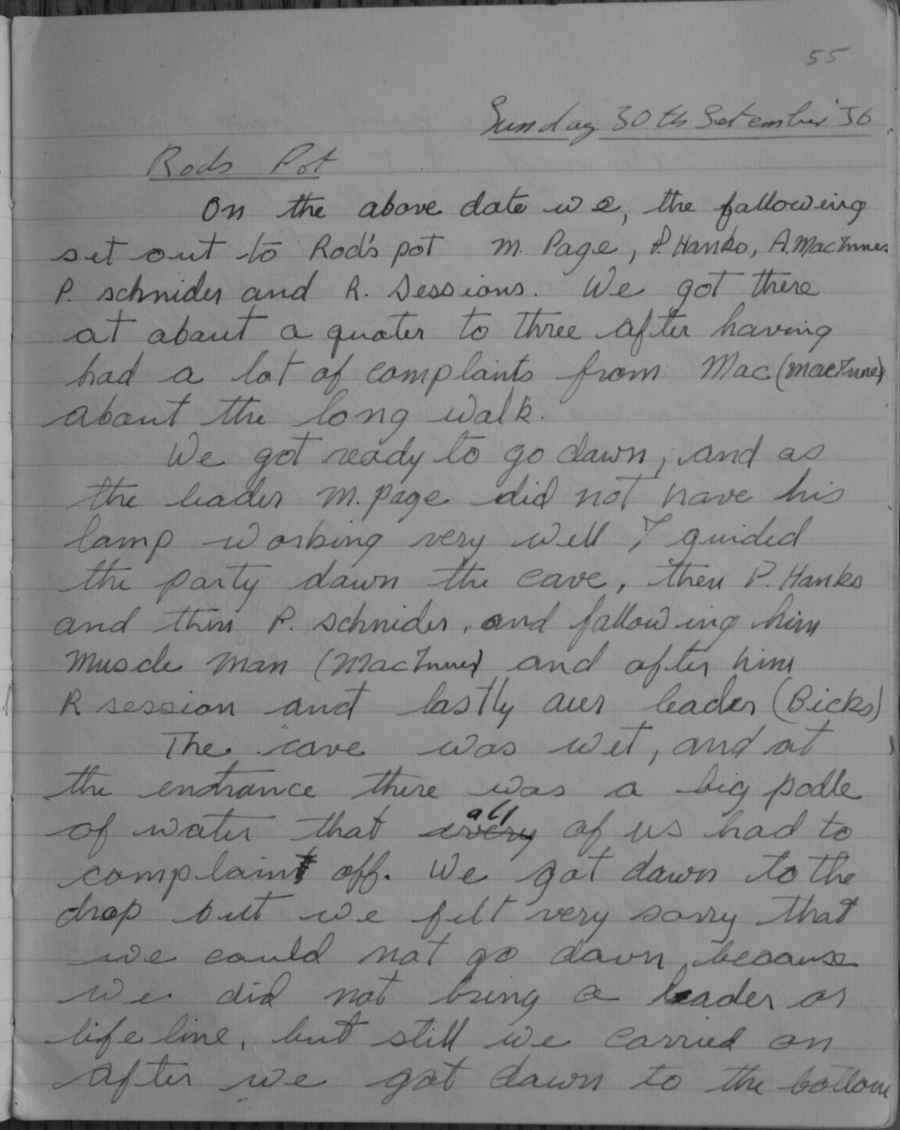 55
Sunday 30th Setember '56.
Rods Pot
On the above date we, the fallowing
set out to Rod's pot M. Page, P. Hanks, A. MacInnes
P. schnider and R. Sessions. We got there
at about a quater to three after having
had a lot of complaints from Mac (MacInnes)
about the long walk.
We got ready to go dawn, and as
the leader M. page did not have his
lamp working very well I guided
the party dawn the cave, then P. Hanks
and then P. schnider, and fallowing him
Muscle man (MacInnes) and after him
R session and lastly our leader (Bicks)
The cave was wet, and at
the entrance there was a big podle
of water that all of us had to
complaint off. We got dawn to the
drop but we felt very sorry that
we could not go dawn, because
we did not bring a leader or
life line, but still we carried on
after we got dawn to the bottom